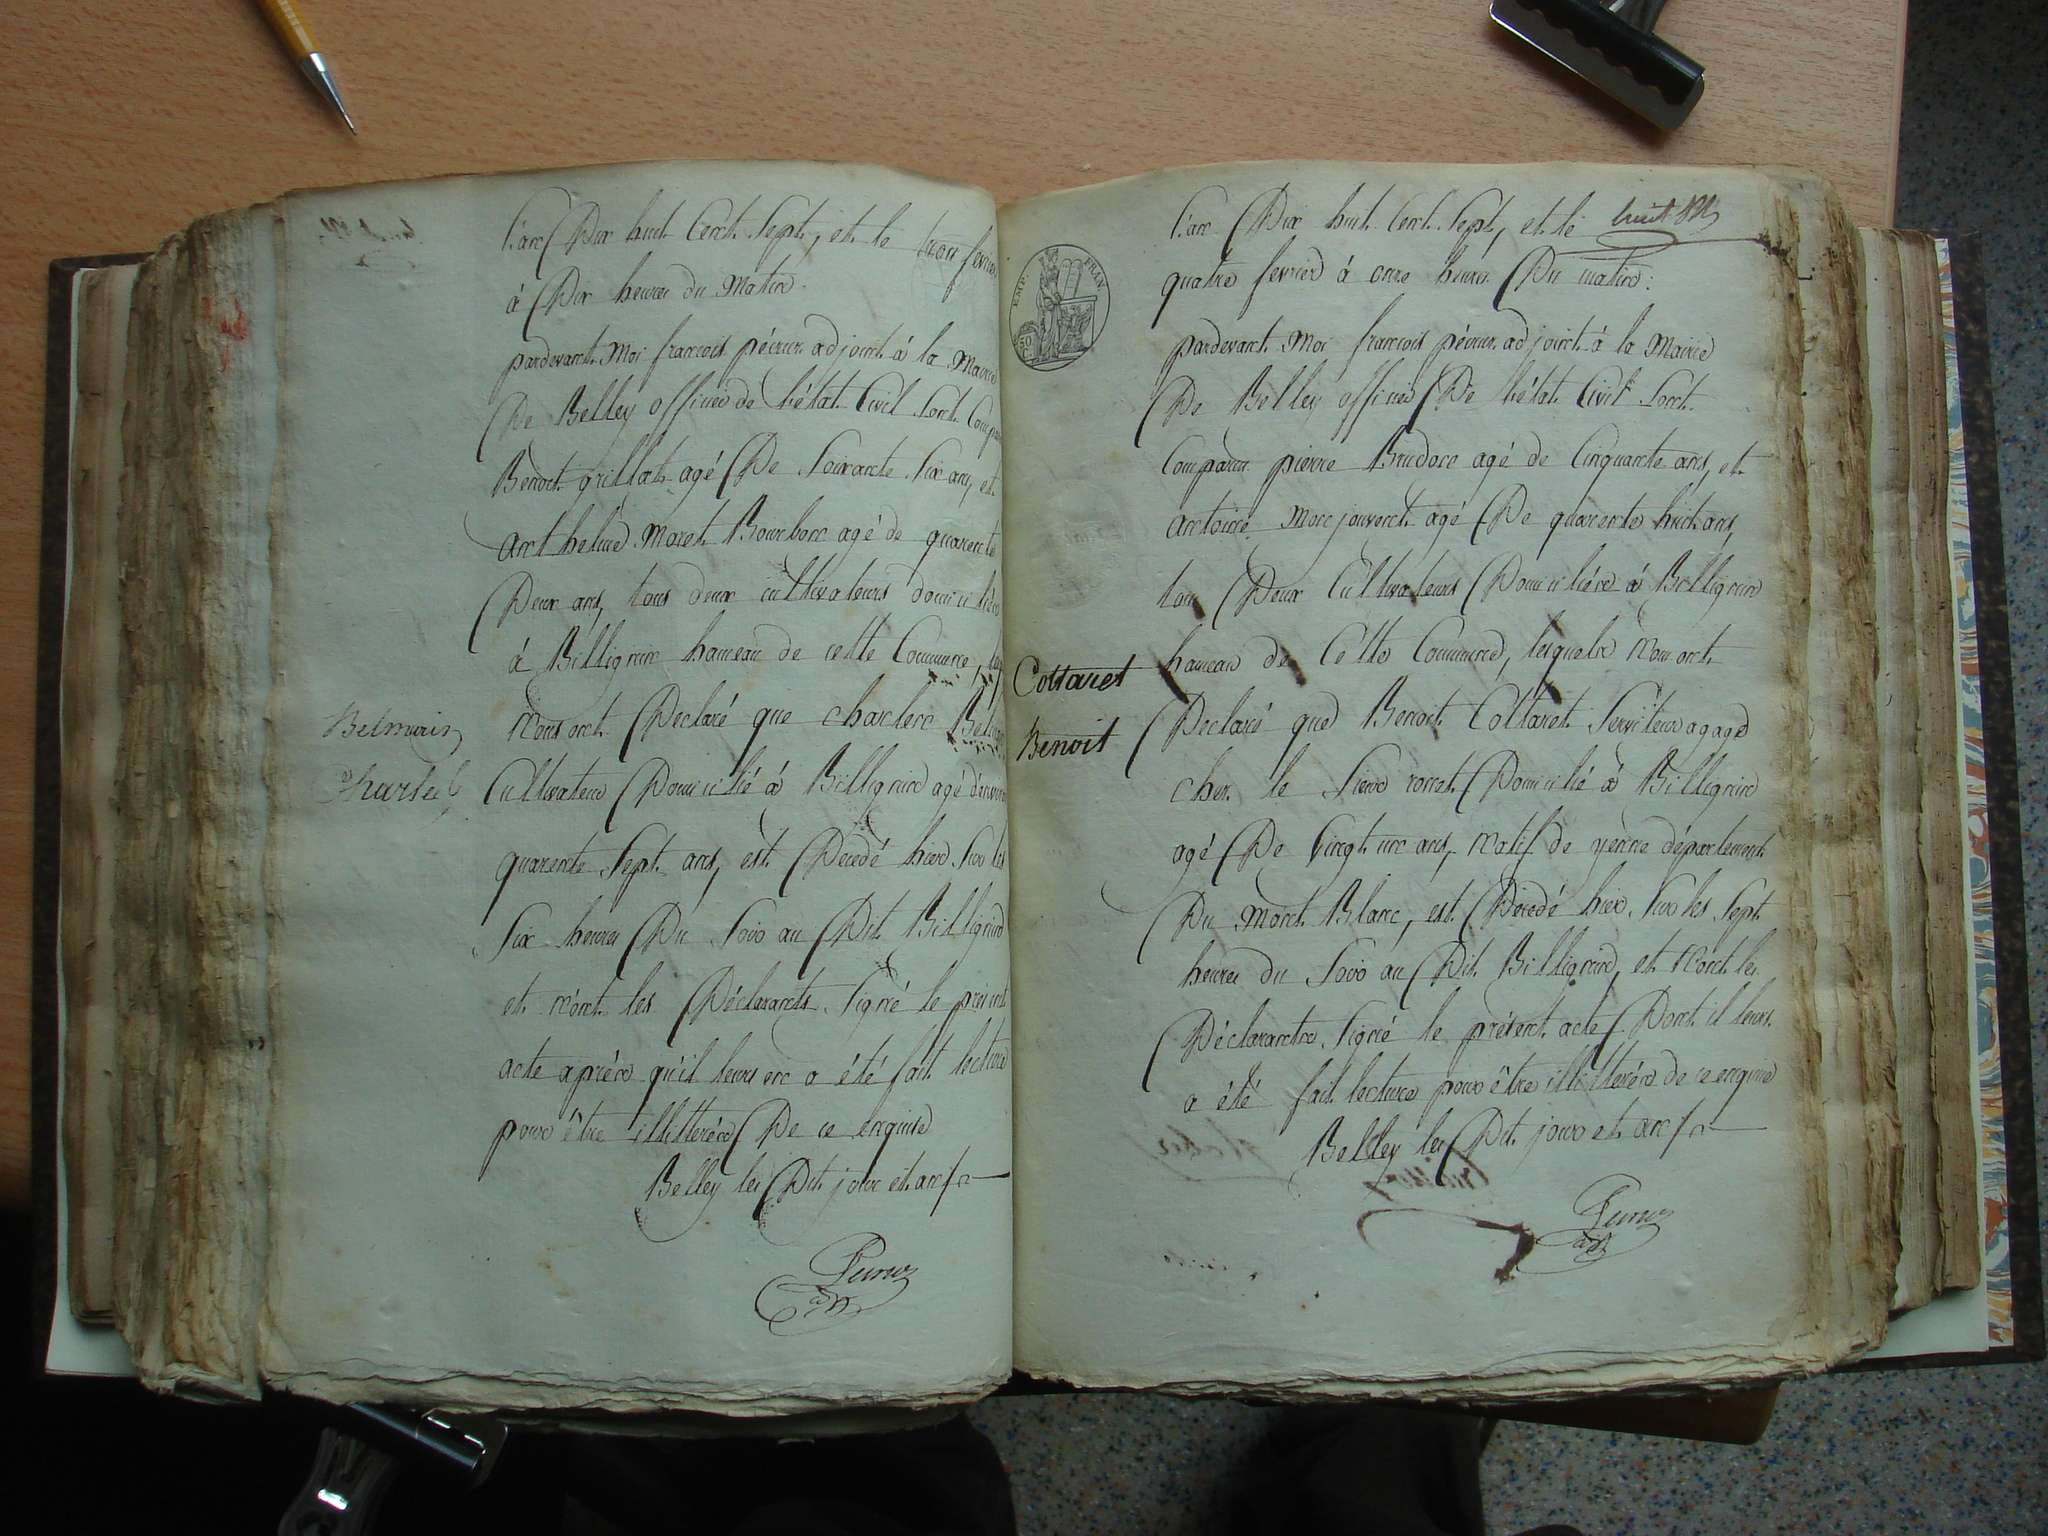 l'an Dix huit Cent Sept, et le trois fevrier
à Dix heures du Matin
pardevant Moi francois péuruz adjoint à la Mairie
De Belley officier de l'état Civil Sont Comparus
Benoit grillat agé De Soixante Six ans, et
anthelme Moret Bourbon agé de quarente
Deux ans, tous deux cultivateurs domiciliés
à Billignin hameau de cette Commune, lesq
Nous ont Declaré que charles Belmain
Belmain
Charles
Cultivateur Domicilié à Billignin agé d'environ
quarente Sept ans, est Décédé hier Sur les
Six heures Du Soir au Dit Billignin
et n'ont les Déclarants Signé le présent
acte après qu'il leurs en a été fait lecture
pour être illitterés De ce enquise
Belley les Dit jour et an
adjt
EMP. FRAN.
50 C
l'an Dix huit Cent Sept, et le
huit
quatre fevrier à onze heures Du matin:
pardevant Moi francois péuruz adjoint à la Mairie
De Belley officier De l'état Civil Sont
Comparus pierre Brudon agé de Cinquante ans, et
antoine Monjouvent agé De quarente huit ans,
tous Deux Cultivateurs Domiciliés à Billignin
hameau de Cette Commune, lesquels Nous ont
Cottaret
Benoit
Declaré que Benoit Cottaret Serviteur agagé
chez le Sieur Domicilié à Billignin
agé De Vingt un ans, Natif de yenne département
Du Mont Blanc, est Décédé hier Sur les Sept
heures du Soir au Dit Billignin, et N'ont les
Déclarants Signé le présent acte Dont il leurs
a été fait lecture pour être illitterés de ce enquise
Belley les Dit jour et an
adjt